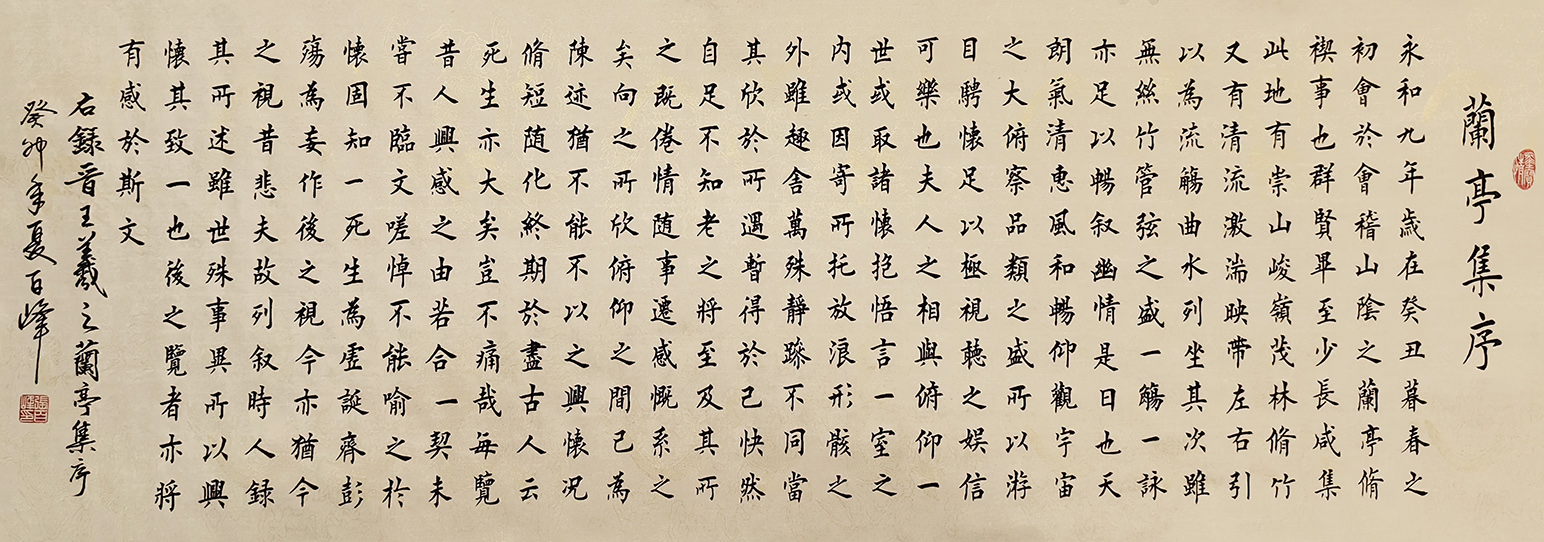 蘭亭集序
永和九年歲在癸丑暮春之
初會於會稽山陰之蘭亭脩
禊事也群賢畢至少長咸集
此地有崇山峻嶺茂林脩竹
又有清流激湍映帶左右引
以為流觴曲水列坐其次雖
無絲竹管弦之盛一觴一詠
亦足以暢叙幽情是日也天
朗氣清惠風和暢仰觀宇宙
之大俯察品類之盛所以游
目騁懷足以極視聽之娛信
可樂也夫人之相與俯仰一
世或取諸懷抱悟言一室之
內或因寄所托放浪形骸之
外雖趣舍萬殊靜躁不同當
其欣於所遇暫得於己快然
自足不知老之將至及其所
之既倦情随事遷感慨系之
矣向之所欣俯仰之間已為
陳迹猶不能不以之興懷况
脩短随化終期於盡古人云
死生亦大矣豈不痛哉每覽
昔人興感之由若合一契未
甞不臨文嗟悼不能喻之於
懷固知一死生為虛誕齊彭
殤為妄作後之視今亦猶今
之視昔悲夫故列叙時人録
其所述雖世殊事異所以興
懷其致一也後之覽者亦將
有感於斯文
右録晉王羲之蘭亭集序
癸卯年夏百峰